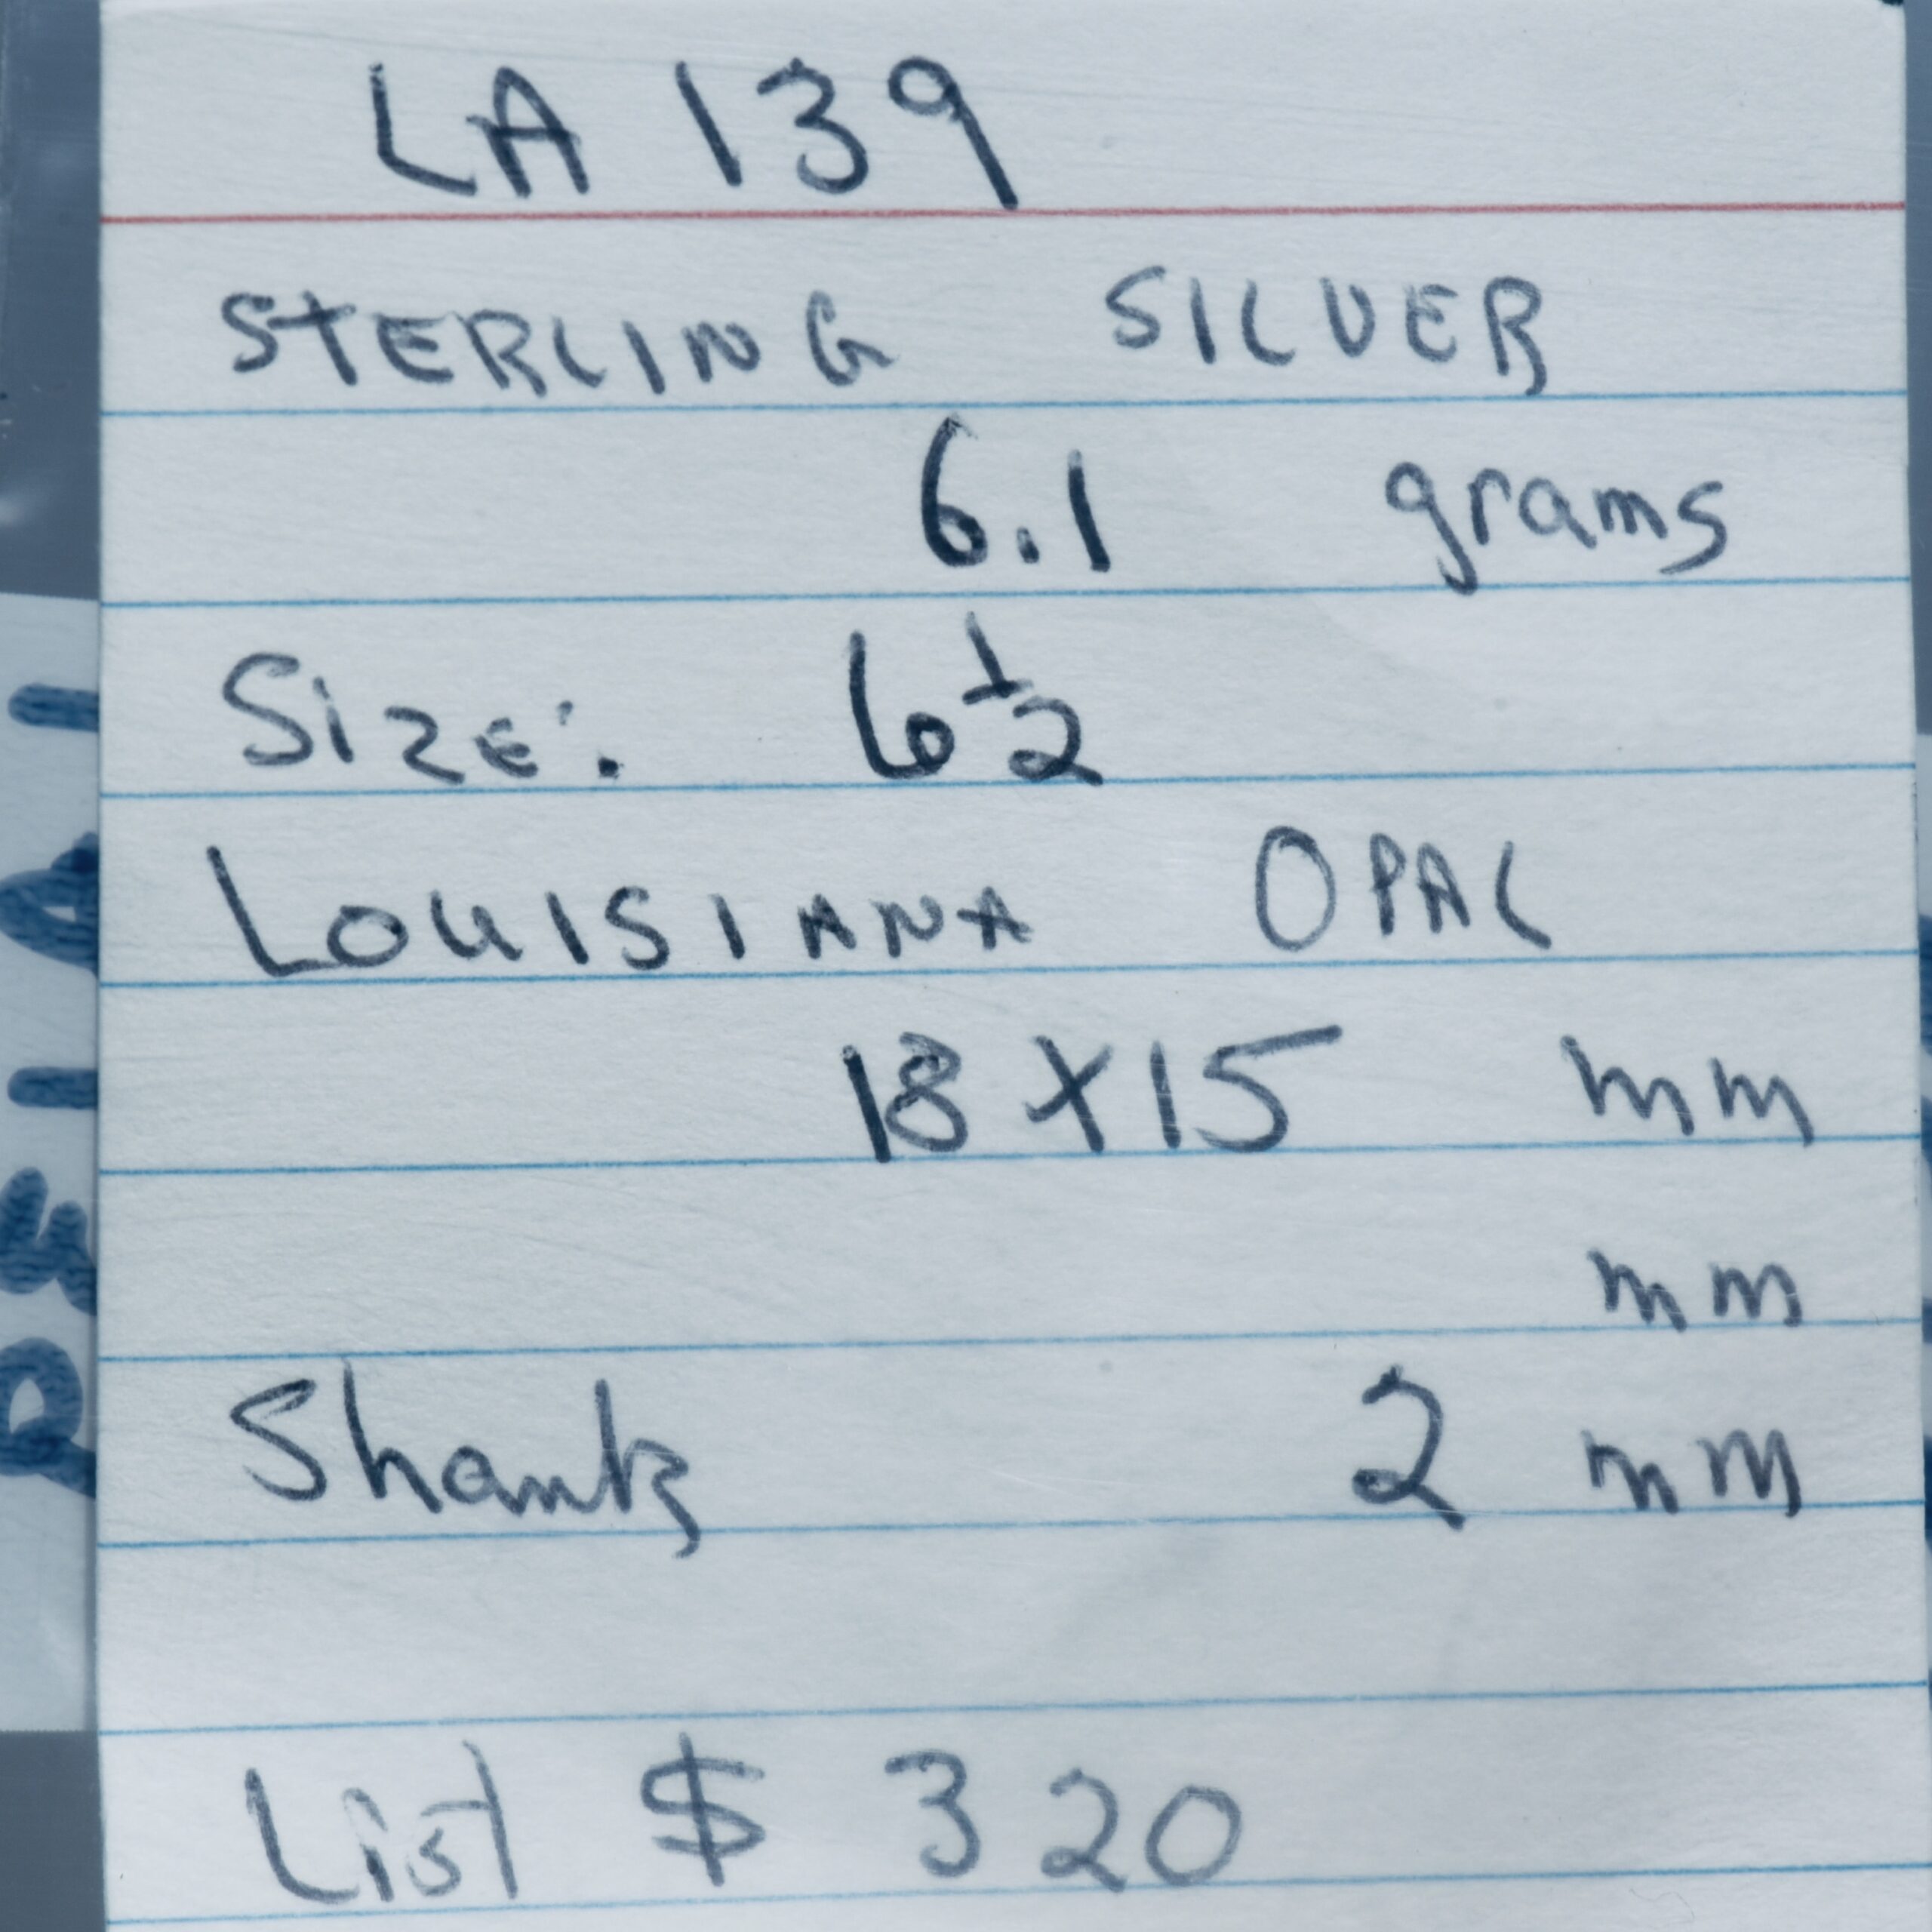 LA 139
STERLING SILVER
6.1 grams
Size: 6 1/2
LOUISIANA OPAL
18 X 15 mm
mm
Shank 2 mm
List $ 320